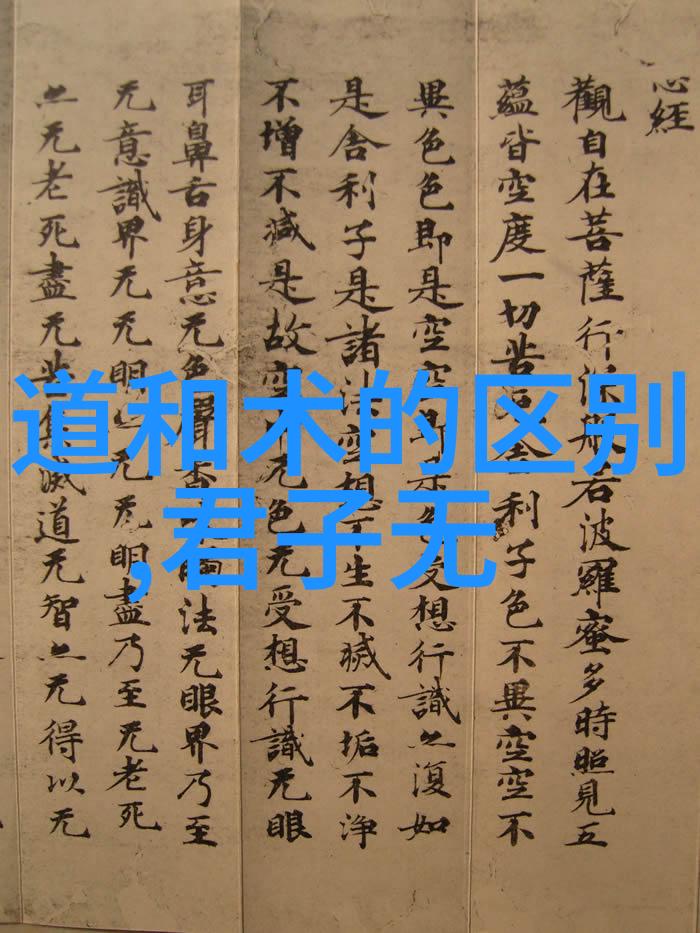 心經
觀自在菩薩行深般若波羅蜜多時照見五
蘊皆空度一切苦厄舍利子色不異空空不
異色色即是空空即是色受想行識亦復如
是舍利子是諸法空想不生不滅不垢不淨
不增不減是故空中无色无受想行識无眼
耳鼻舌身意无色聲香觸法无眼界乃至
无意識界无无明亦无无明盡乃至无老死
亦无老死盡无苦集滅道无智亦无得以无
道和术的区别
,君子无